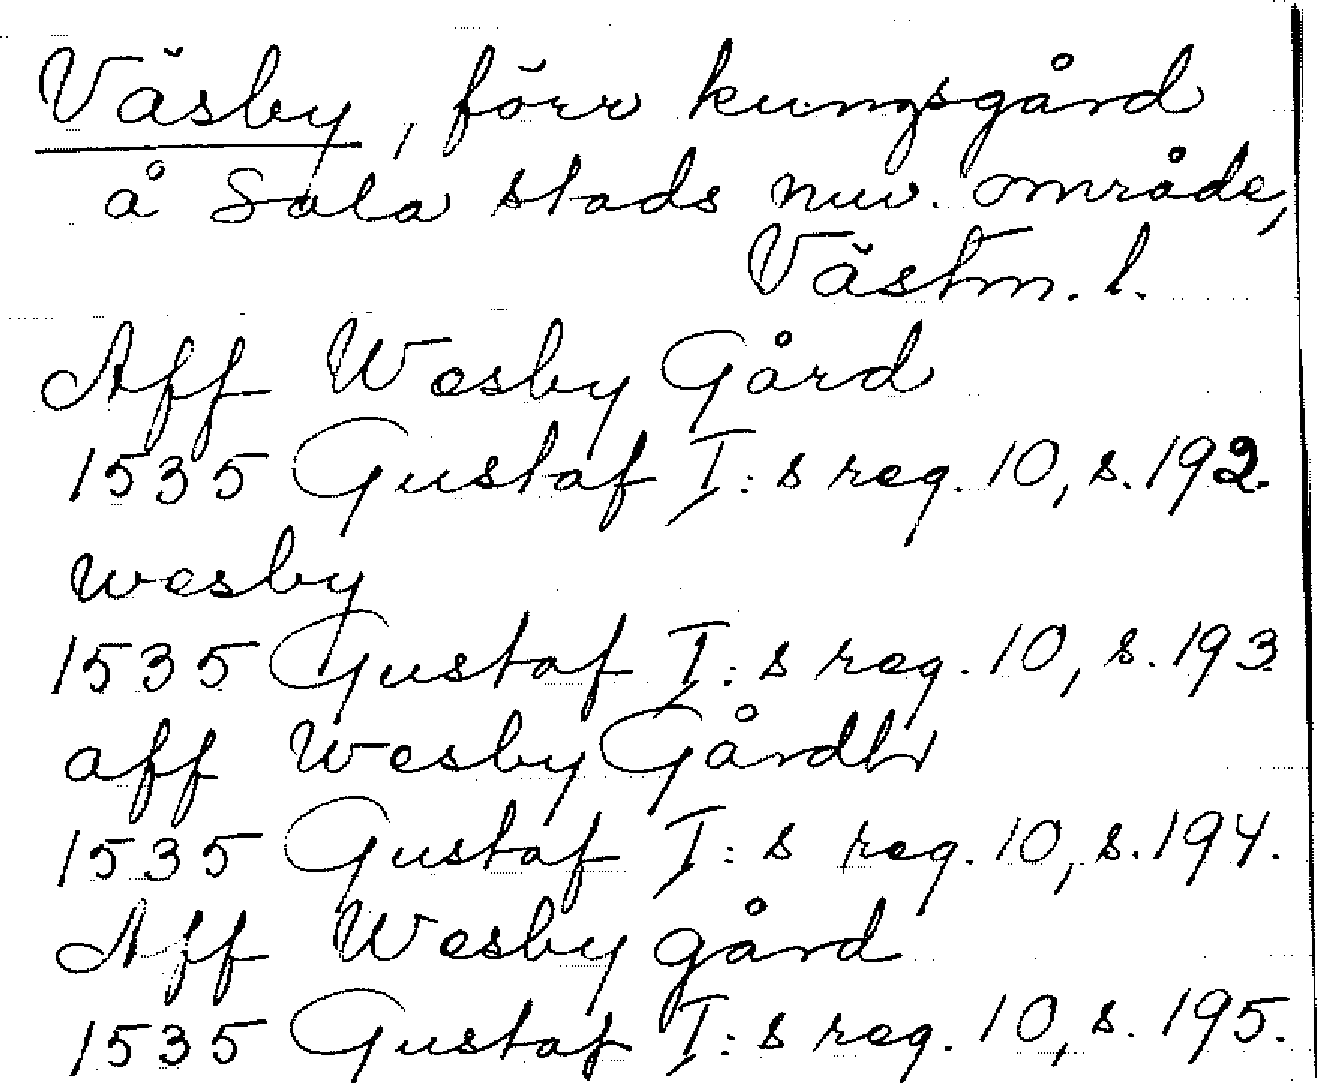 Väsby, förr kungsgård
å Sala stads nuv. område,
Västm. l.
Aff Wesby Gård
1535 Gustaf I:s reg. 10, s. 192.
wesby
1535 Gustaf I:s reg. 10, s. 193
aff Wesby Gårdh
1535 Gustaf I:s reg. 10, s. 194.
Aff Wesby gård
1535 Gustaf I:s reg. 10, s. 195.